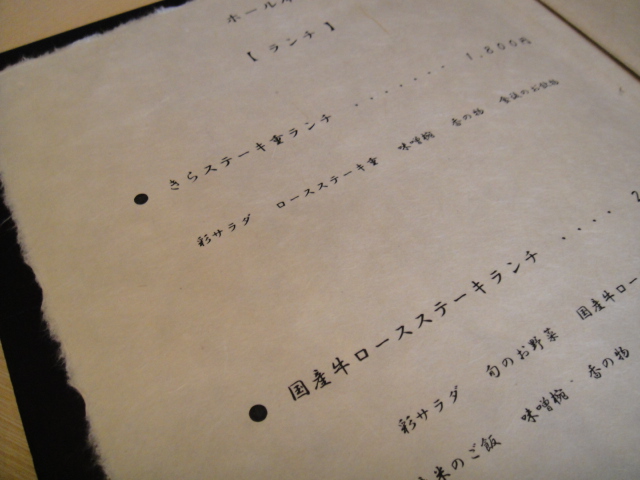 ホール
【 ランチ 】
● きらステーキ重ランチ ・・・・・・・ 1,800円
彩サラダ ロースステーキ重 味噌椀 香の物 食後のお飲物
● 国産牛ロースステーキランチ ・・・・ 2
彩サラダ 旬のお野菜 国産牛ロー
米のご飯 味噌椀 香の物